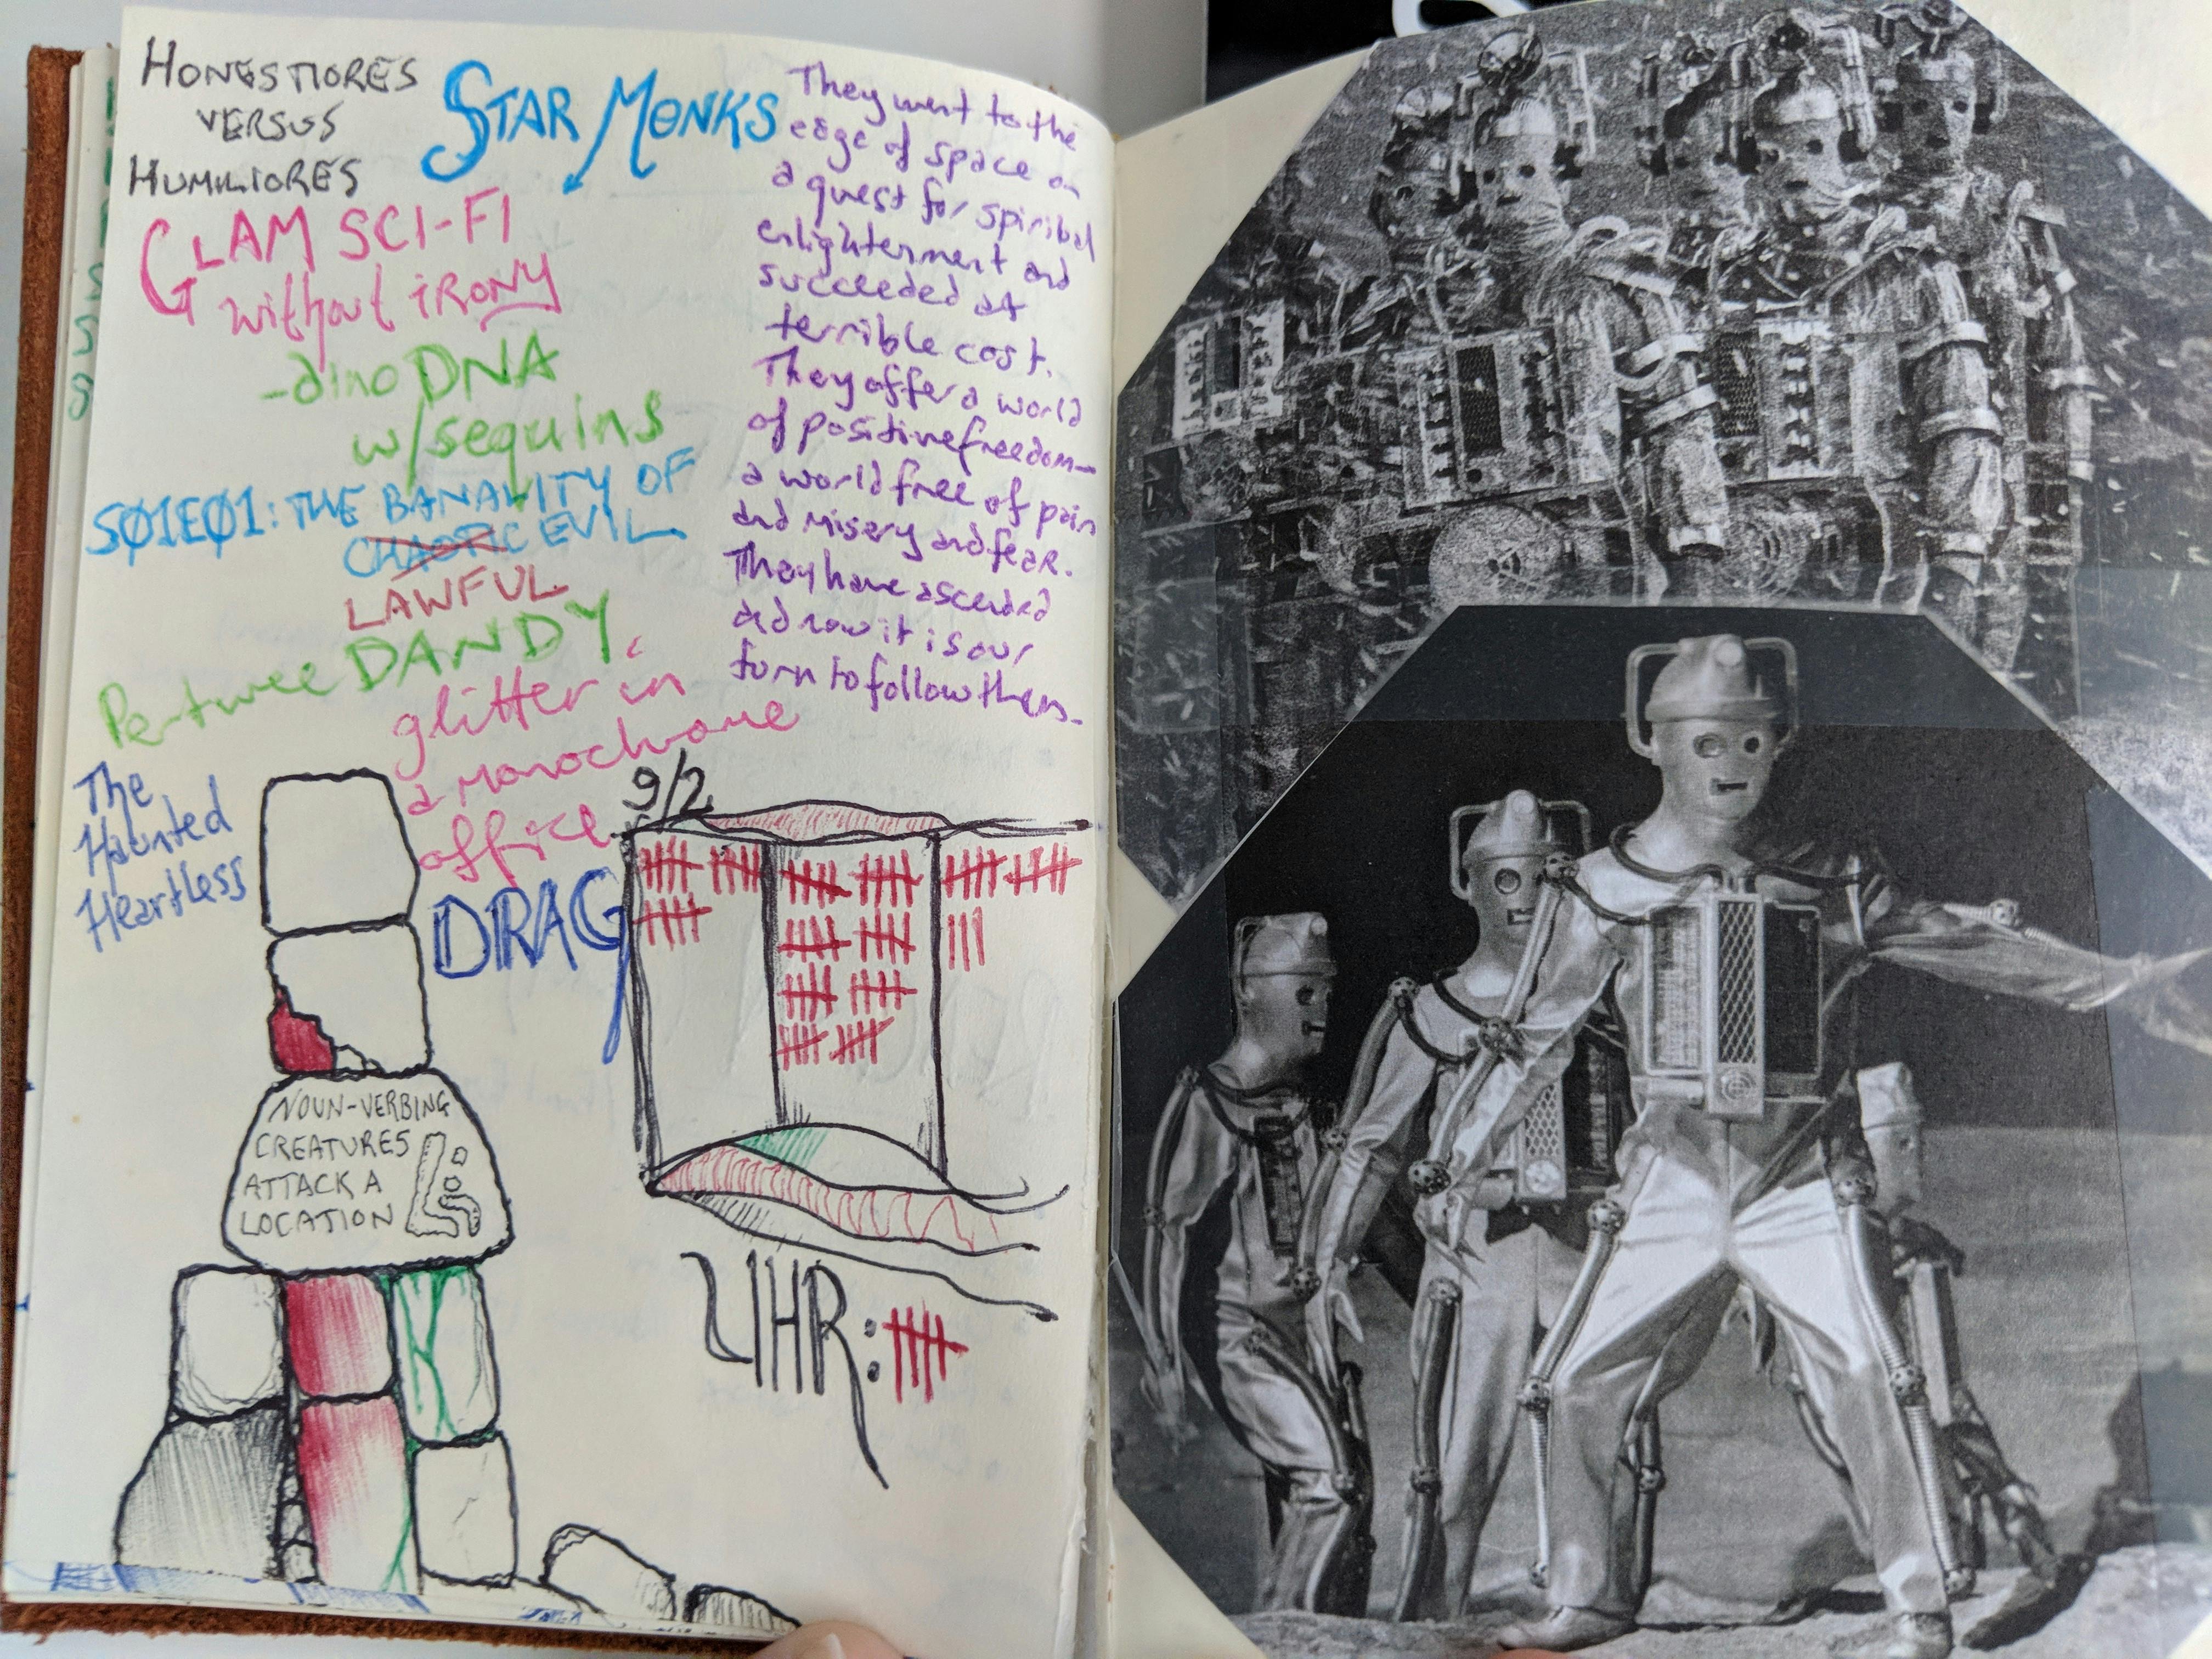 HONESTIORES
VERSUS
HUMILIORES
STAR MONKS
GLAM SCI-FI
without iRONY
-dino DNA
w/sequins
SØ1EØ1: THE BANALITY OF
CHAOTIC EVIL
LAWFUL
Pertwee DANDY
glitter in
a monochrome
office
The
Haunted
Heartless
DRAG
They went to the
edge of space on
a quest for spiritual
enlightenment and
succeeded at
terrible cost.
They offer a world
of positive freedom—
a world free of pain
and misery and fear.
They have ascended
and now it is our
turn to follow them.
9/2
NOUN-VERBING
CREATURES
ATTACK A
LOCATION
UHR: